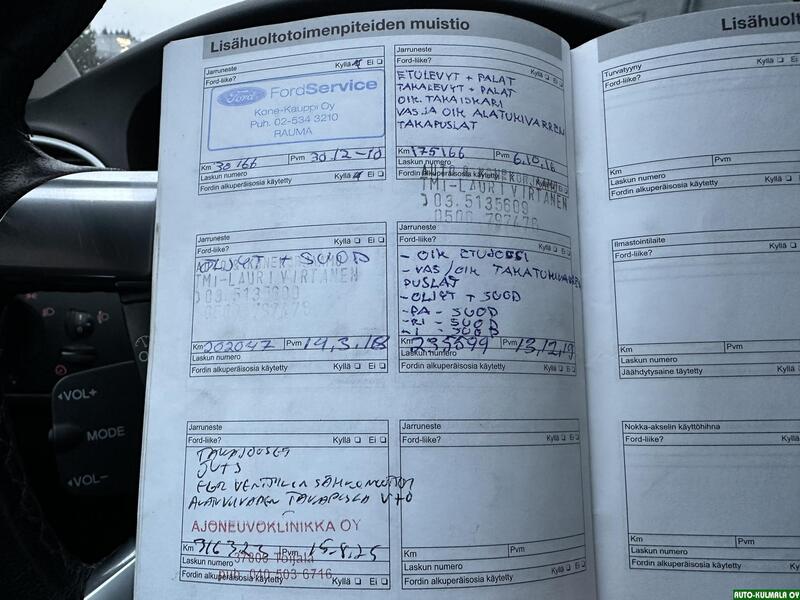 Lisähuoltotoimenpiteiden muistio
Jarruneste
Ford-liike? Kyllä Ei
Ford FordService
Kone-Kauppi Oy
Puh. 02-534 3210
RAUMA
Km 30 166 Pvm 30.12-10
Laskun numero
Fordin alkuperäisosia käytetty Kyllä Ei
Jarruneste
Ford-liike? Kyllä Ei
ETULEVYT + PALAT
TAKALEVYT + PALAT
OIK TAKAISKARI
VAS JA OIK ALATUKIVARREN
TAKAPUSLAT
Km 175166 Pvm 6.10.16
Laskun numero
Fordin alkuperäisosia käytetty
TMI-LAURI VIRTANEN
03.5135609
0500 797478
Jarruneste
Ford-liike? Kyllä Ei
ÖLJYT + SUOD
TMI-LAURI VIRTANEN
03.5135609
Km 202047 Pvm 14.3.18
Laskun numero
Fordin alkuperäisosia käytetty Kyllä Ei
Jarruneste
Ford-liike? Kyllä Ei
- OIK ETUJOUSI
- VAS/OIK TAKATUKIVARREN
PUSLAT
- ÖLJYT + SUOD
- PA - SUOD
- RI - SUOD
- I - SUOD
Km 235599 Pvm 13.12.19
Laskun numero
Fordin alkuperäisosia käytetty Kyllä Ei
Jarruneste
Ford-liike? Kyllä Ei
TAKAJOUSET
EGR VENTTIILIN SÄHKÖMOOTTORI
ALATUKIVARREN TAKAPUSLA V+O
AJONEUVOKLINIKKA OY
37800 Toijala
Puh. 040 503 6716
Km 316323 Pvm 15.8.25
Laskun numero
Fordin alkuperäisosia käytetty Kyllä Ei
Jarruneste
Ford-liike? Kyllä Ei
Km Pvm
Laskun numero
Fordin alkuperäisosia käytetty Kyllä Ei
Lisähuoltot
Turvatyyny
Ford-liike? Kyllä
Km Pvm
Laskun numero
Fordin alkuperäisosia käytetty Kyllä
Ilmastointilaite
Ford-liike? Kyllä
Km Pvm
Laskun numero
Jäähdytysaine täytetty Kyllä
Nokka-akselin käyttöhihna
Ford-liike? Kyllä
Km Pvm
Laskun numero
Fordin alkuperäisosia käytetty Kyllä
VOL+
MODE
VOL-
AUTO-KULMALA OY